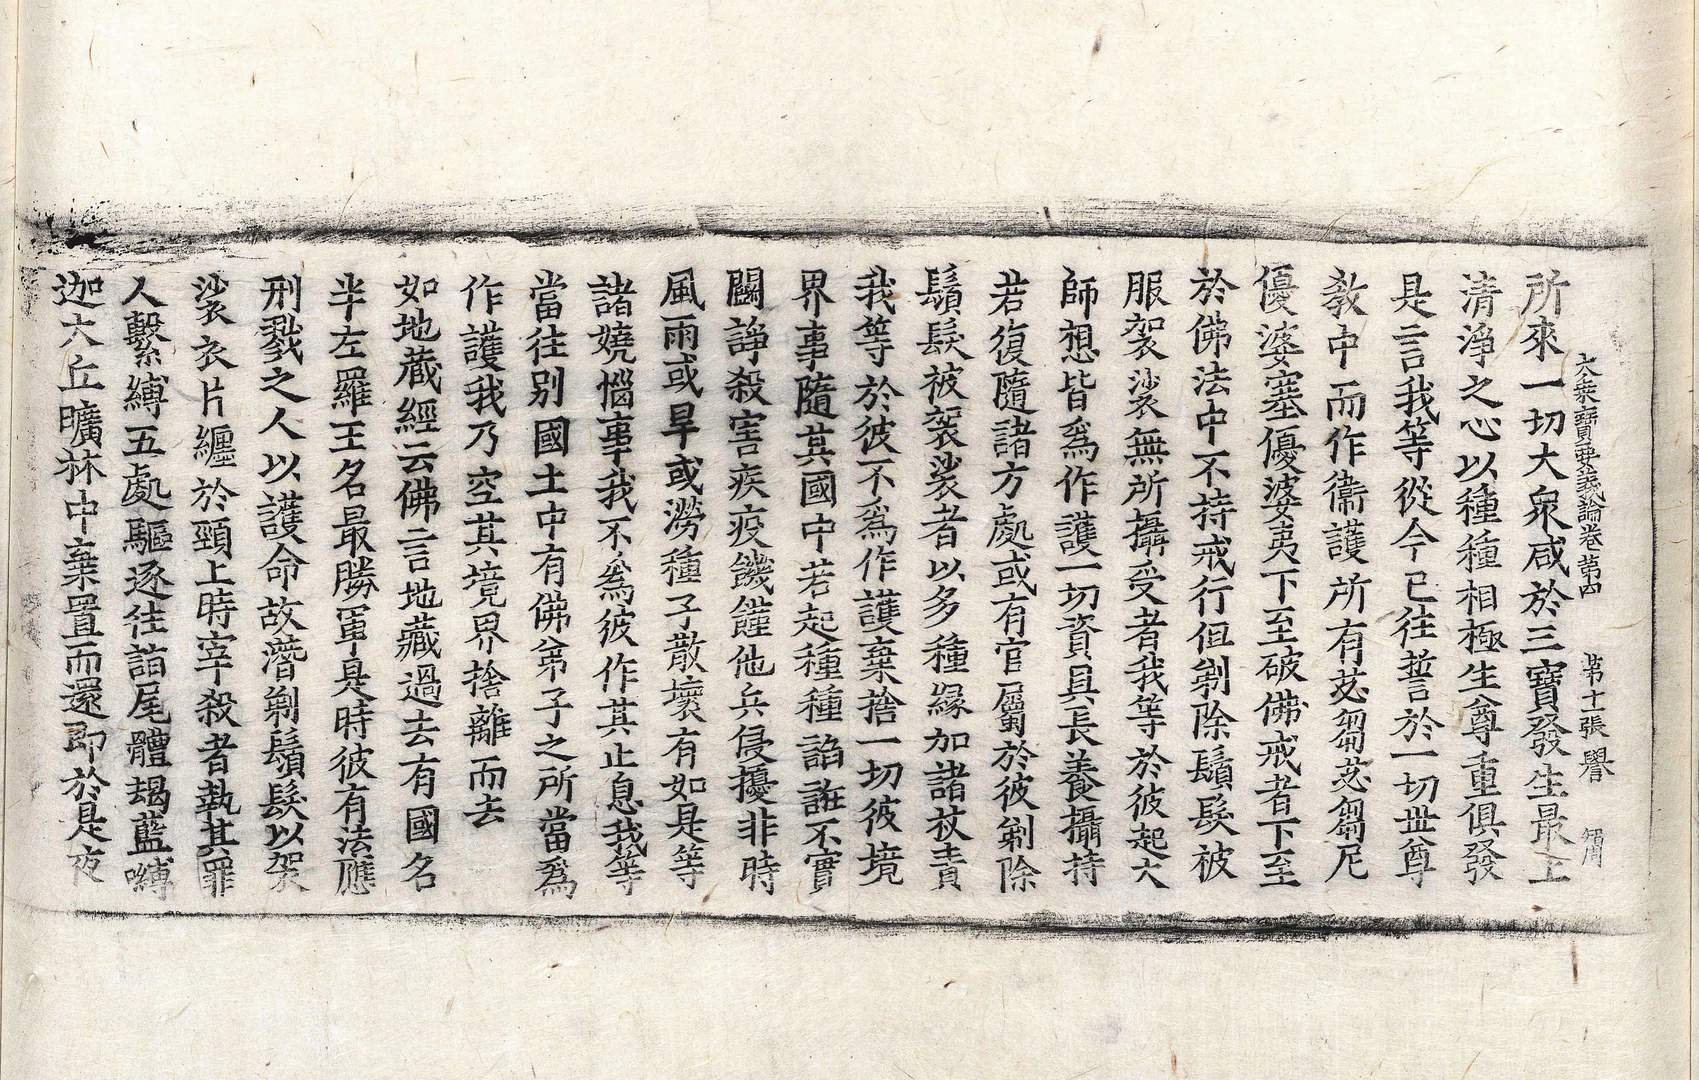 大乘寶要義論卷第四 第十張 譽
所來一切大衆咸於三寶發生最上
清淨之心以種種相極生尊重俱發
是言我等從今已往誓於一切世尊
教中而作衞護所有苾芻苾芻尼
優婆塞優婆夷下至破佛戒者下至
於佛法中不持戒行但剃除鬚髮被
服袈裟無所攝受者我等於彼起大
師想皆爲作護一切資具長養攝持
若復隨諸方處或有官屬於彼剃除
鬚髮被袈裟者以多種緣加諸杖責
我等於彼不爲作護棄捨一切彼境
界事隨其國中若起種種諂誑不實
鬪諍殺害疾疫饑饉他兵侵擾非時
風雨或旱或澇種子散壞有如是等
諸嬈惱事我不爲彼作其止息我等
當往別國土中有佛弟子之所當爲
作護我乃空其境界捨離而去
如地藏經云佛言地藏過去有國名
半左羅王名最勝軍是時彼有法應
刑戮之人以護命故潛剃鬚髮以袈
裟衣片纏於頸上時宰殺者執其罪
人繫縛五處驅逐往詣尾體朅藍嚩
迦大丘曠林中棄置而還即於是夜